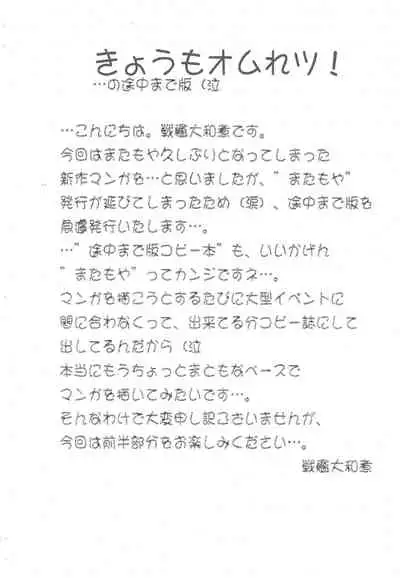 きょうもオムれツ！
…の途中まで版（泣
…こんにちは。戦艦大和煮です。
今回はまたもや久しぶりとなってしまった
新作マンガを…と思いましたが、”またもや”
発行が延びてしまったため（涙）、途中まで版を
急慮発行いたします…。
…”途中まで版コピー本”も、いいかげん
”またもや”ってカンジですネ…。
マンガを描こうとするたびに大型イベントに
間に合わなくって、出来てる分コピー誌にして
出してるんだから（泣
本当にもうちょっとまともなペースで
マンガを描いてみたいです…。
そんなわけで大変申し訳ございませんが、
今回は前半部分をお楽しみください…。
戦艦大和煮